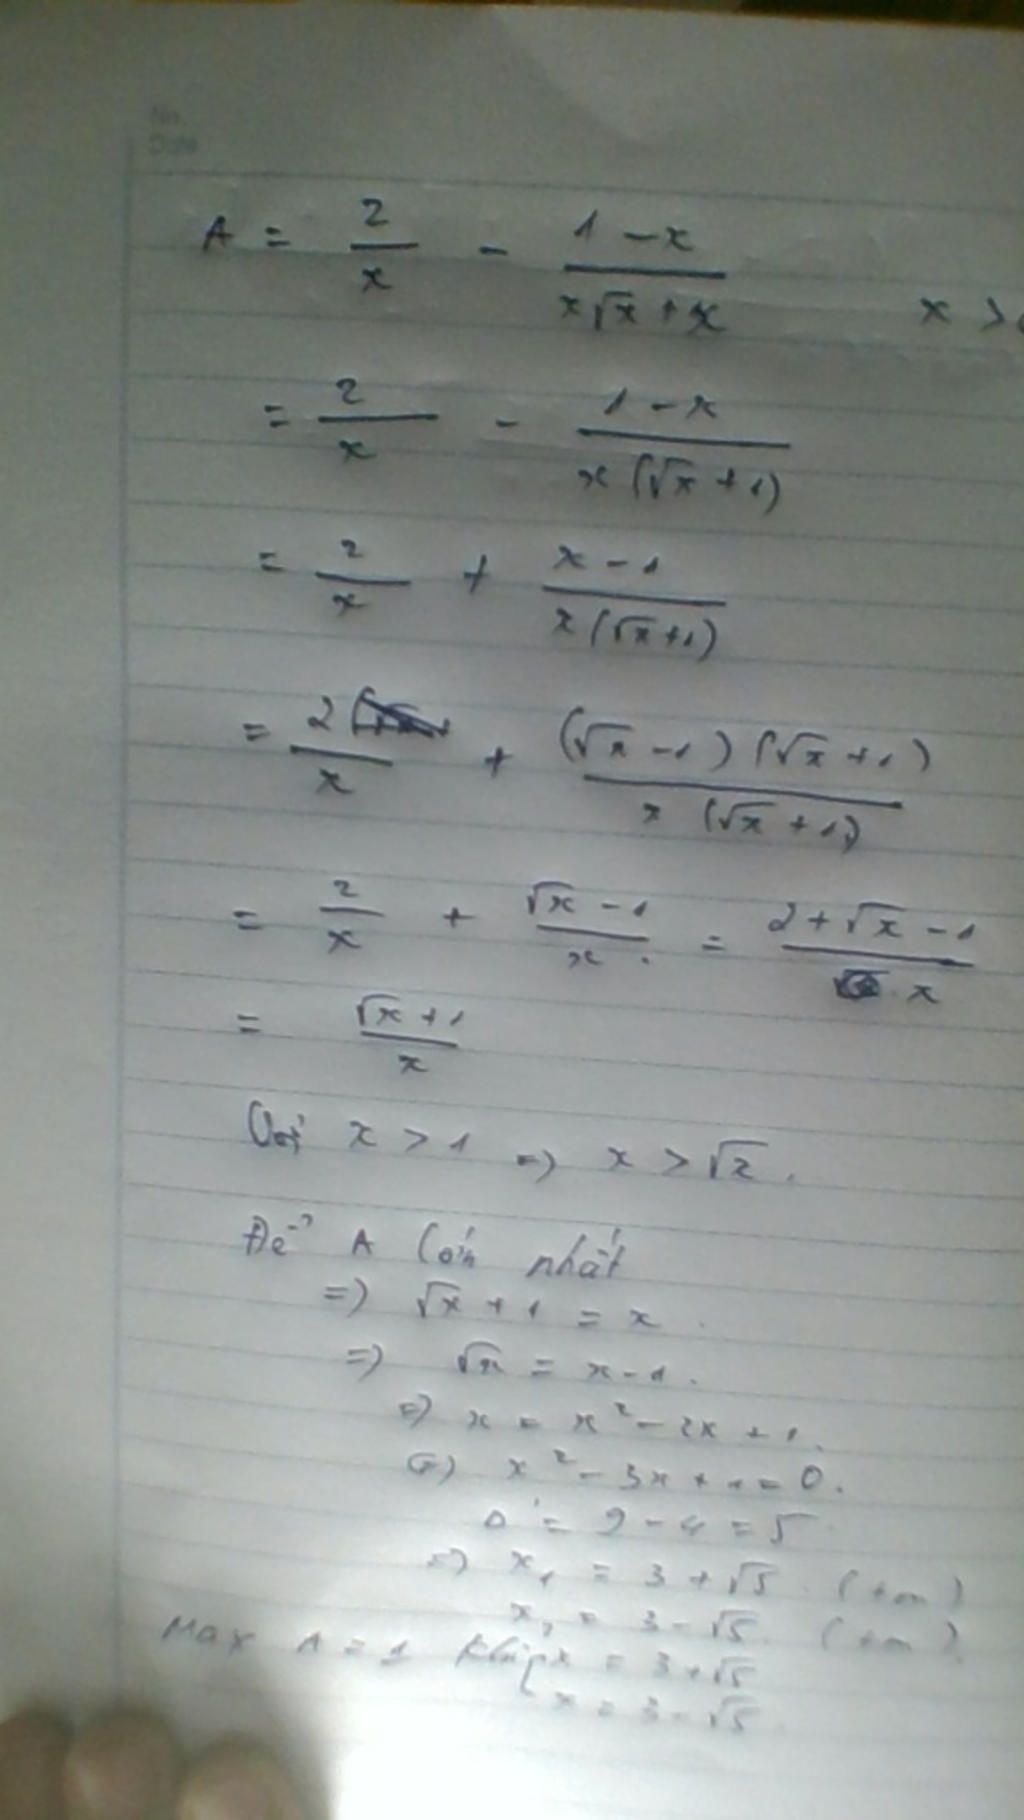 No.
Date
A = 2/x - (1 - x)/(x√x + x) x >
= 2/x - (1 - x)/(x(√x + 1))
= 2/x + (x - 1)/(x(√x + 1))
= 2/x + ((√x - 1)(√x + 1))/(x(√x + 1))
= 2/x + (√x - 1)/x = (2 + √x - 1)/x
= (√x + 1)/x
Với x > 1 => x > √x.
Để A lớn nhất
=> √x + 1 = x.
=> √x = x - 1.
=> x = x² - 2x + 1.
=> x² - 3x + 1 = 0.
Δ = 9 - 4 = 5
=> x₁ = 3 + √5 (tm)
x₂ = 3 - √5. (tm).
Max A = 1 khi x = 3 + √5
x = 3 - √5